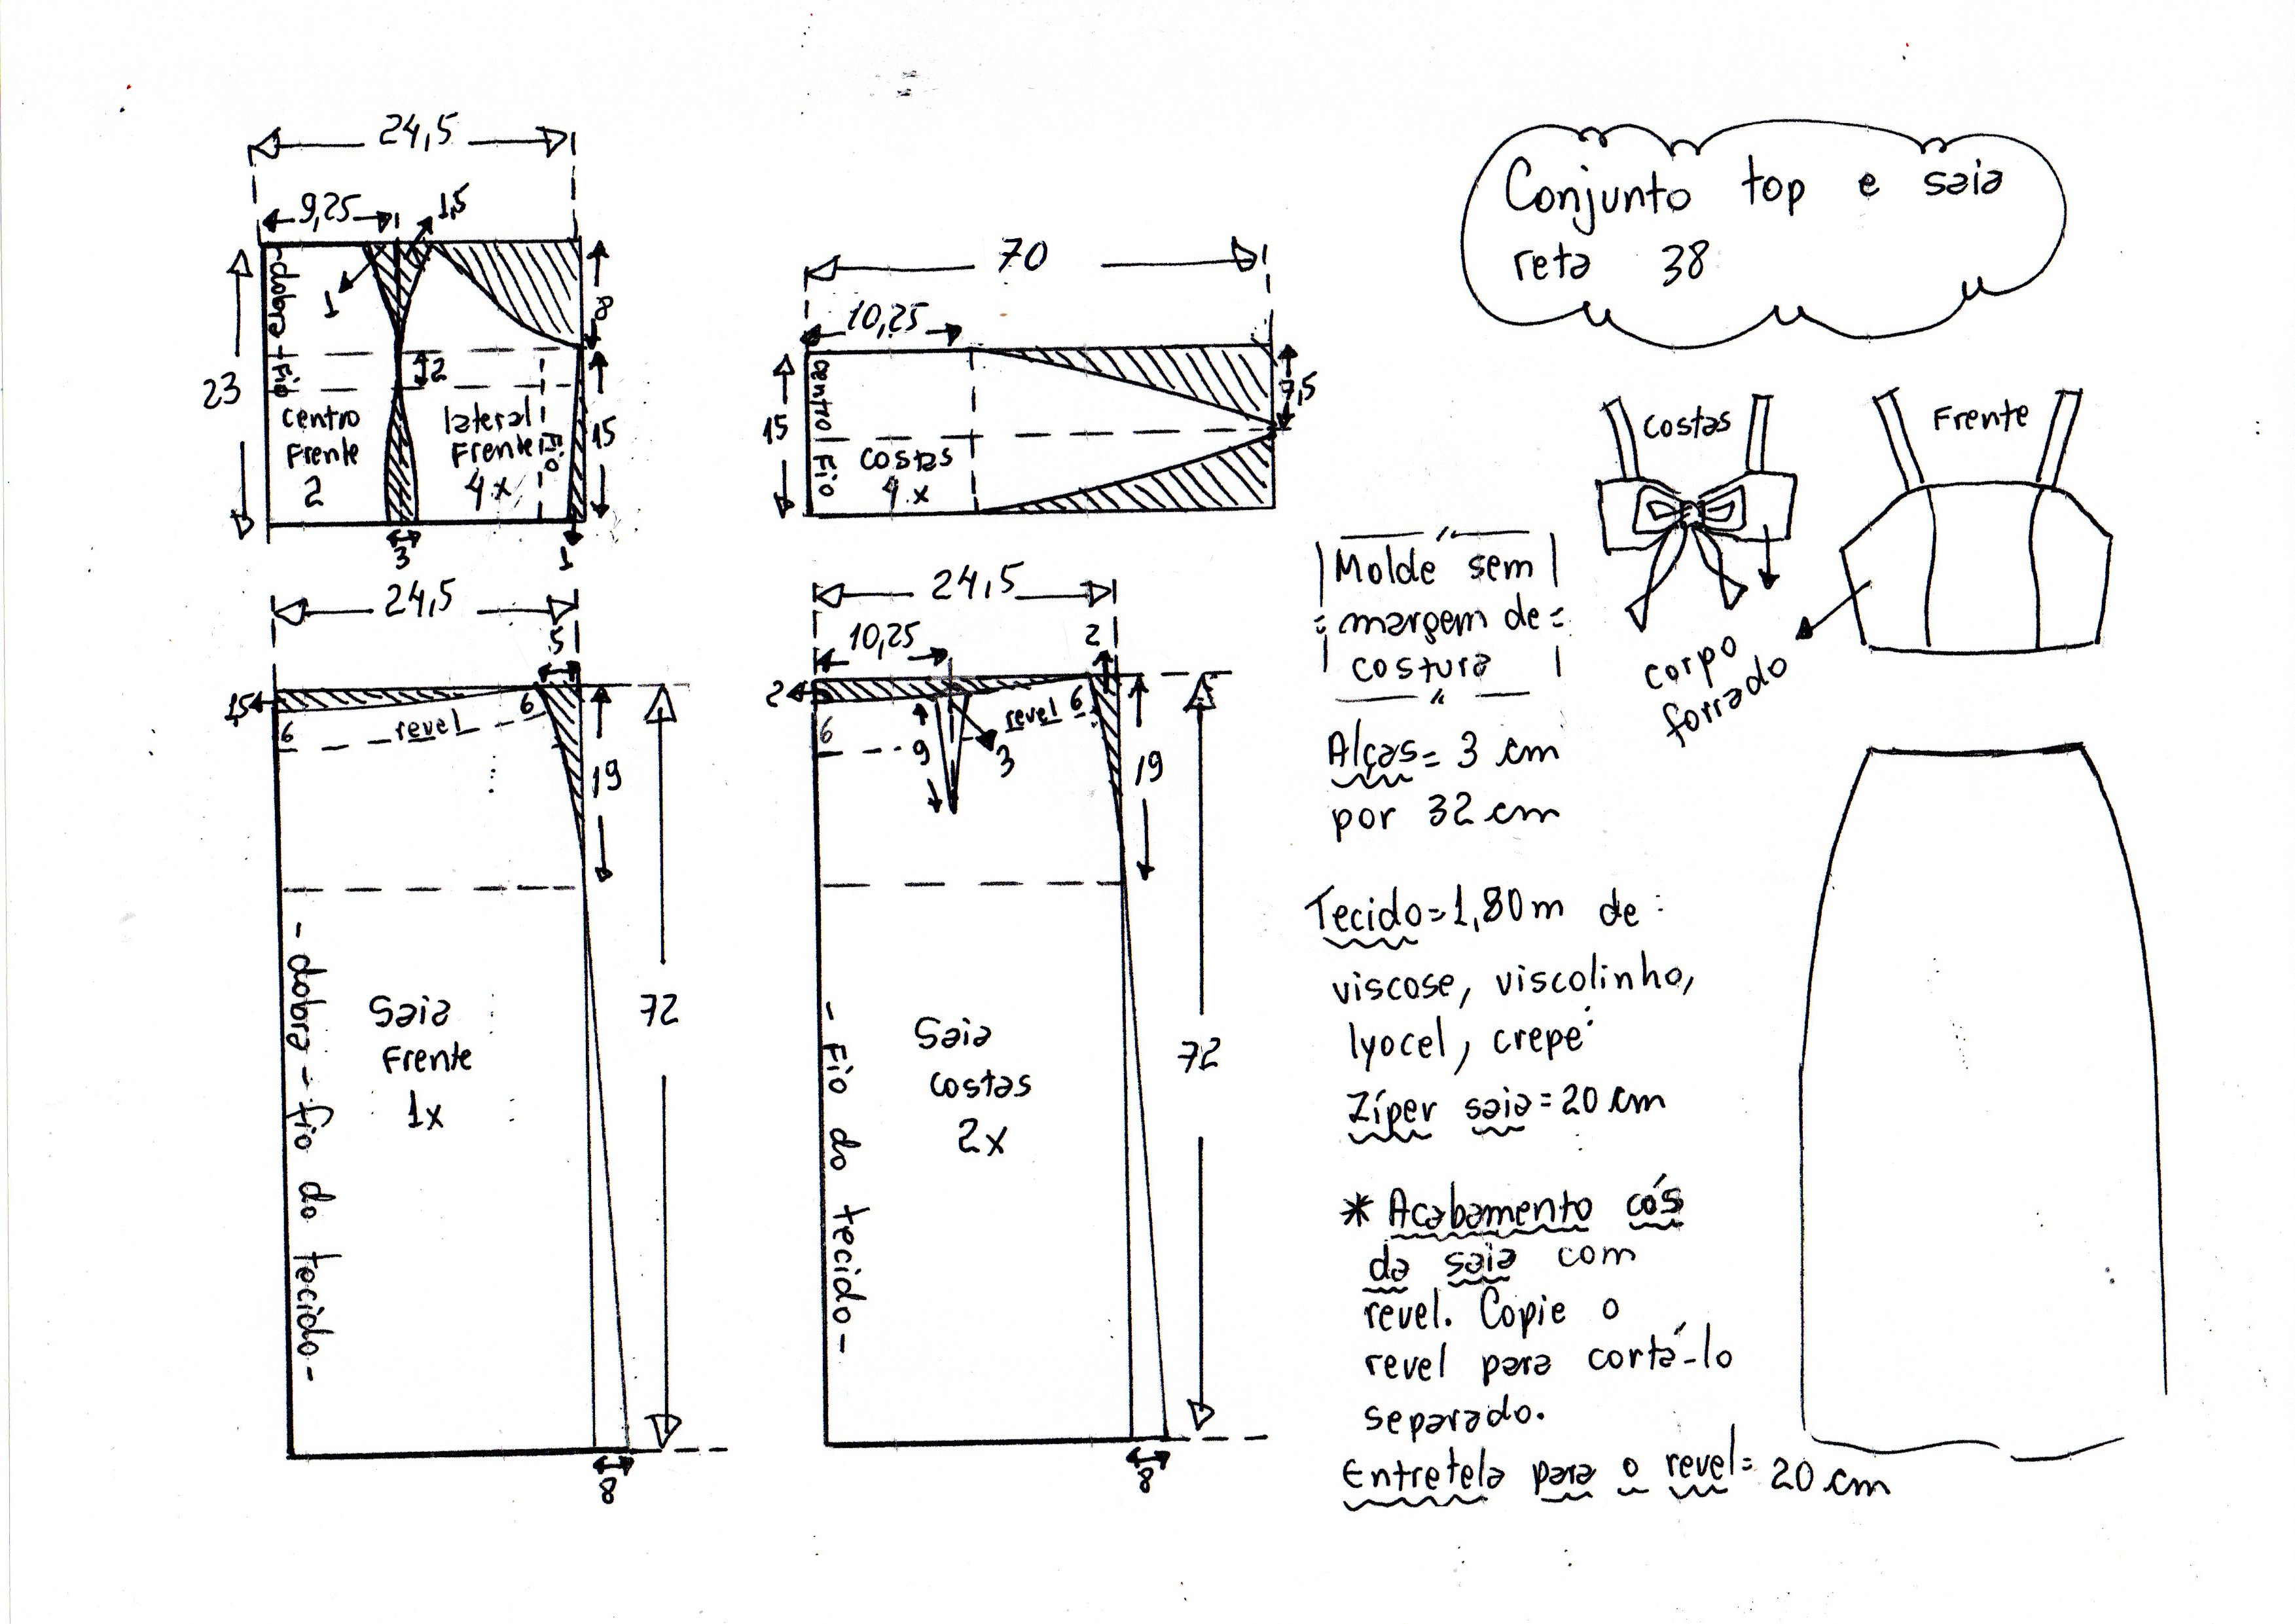 Conjunto top e saia
reta 38
24,5
9,25
1,5
1
dobra - fio
23
8
2
centro
Frente
2
lateral
Frente
4x
Fio
15
3
1
70
10,25
15
centro Fio
costas
4x
7,5
costas
Frente
corpo
forrado
Molde sem
margem de
costura
24,5
5
1,5
6
revel
6
19
72
- dobra - fio do tecido -
Saia
Frente
1x
8
24,5
10,25
2
2
6
9
3
revel 6
19
72
- Fio do tecido -
Saia
costas
2x
8
Alças= 3 cm
por 32 cm
Tecido=1,80m de
viscose, viscolinho,
lyocel, crepe
Zíper saia=20 cm
* Acabamento cós
da saia com
revel. Copie o
revel para cortá-lo
separado.
Entretela para o revel= 20 cm